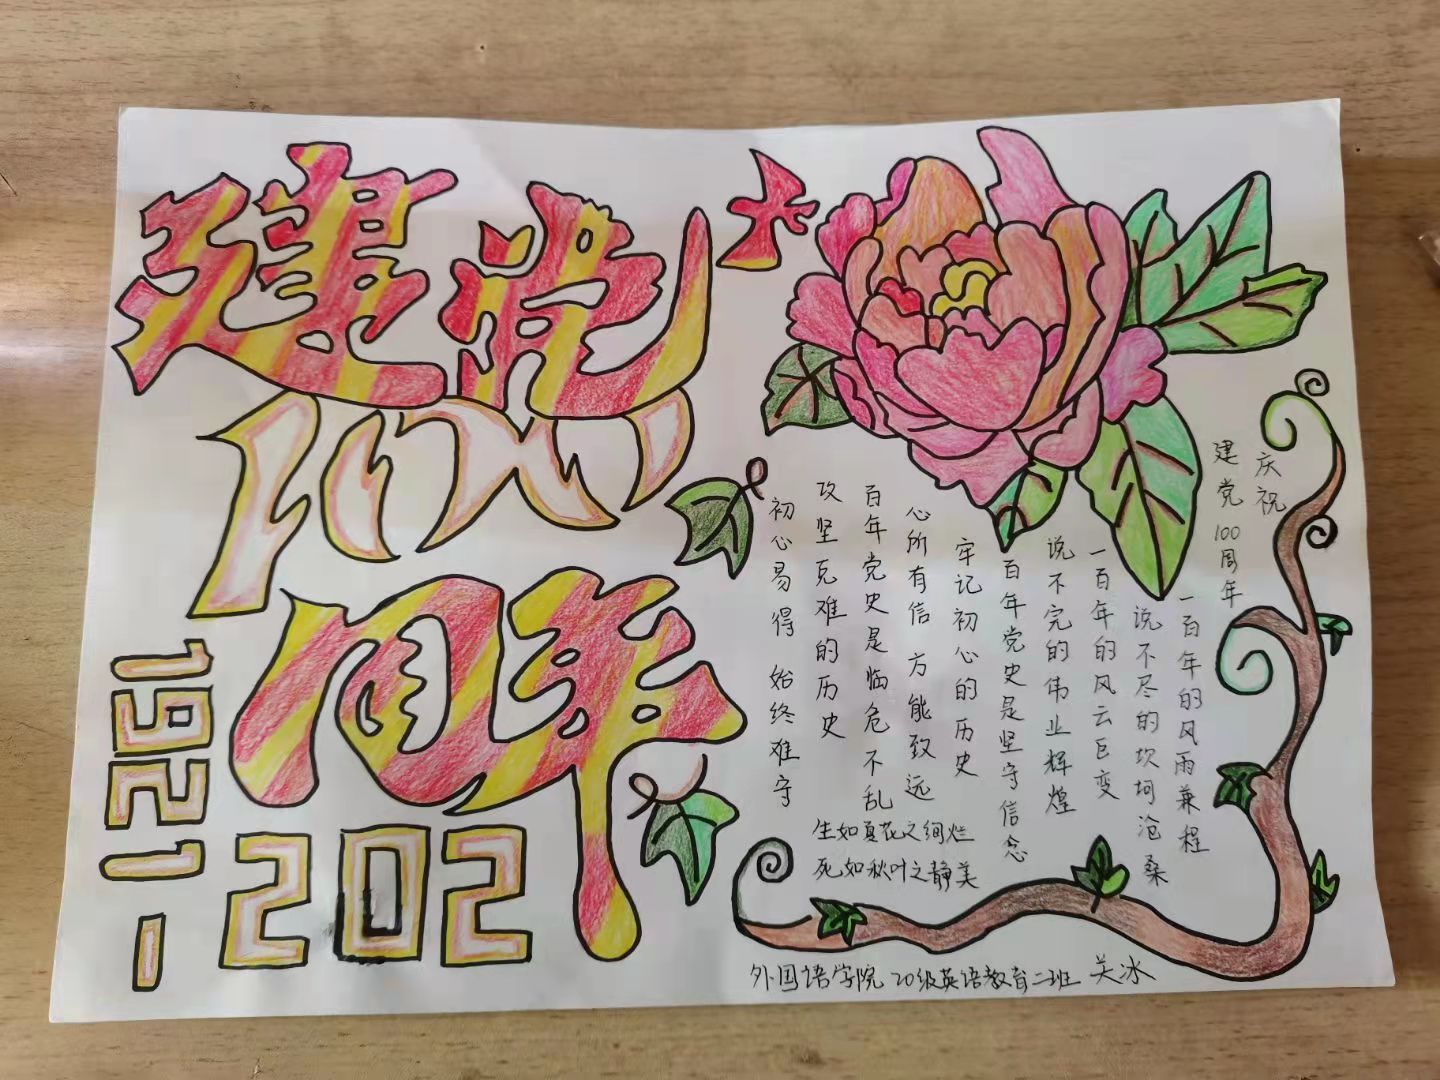 建党
100
周年
1921-
202
庆祝
建党100周年
一百年的风雨兼程
说不尽的坎坷沧桑
一百年的风云巨变
说不完的伟业辉煌
百年党史是坚守信念
牢记初心的历史
心所有信 方能致远
百年党史是临危不乱
攻坚克难的历史
初心易得 始终难守
生如夏花之绚烂
死如秋叶之静美
外国语学院 20级英语教育二班 关冰